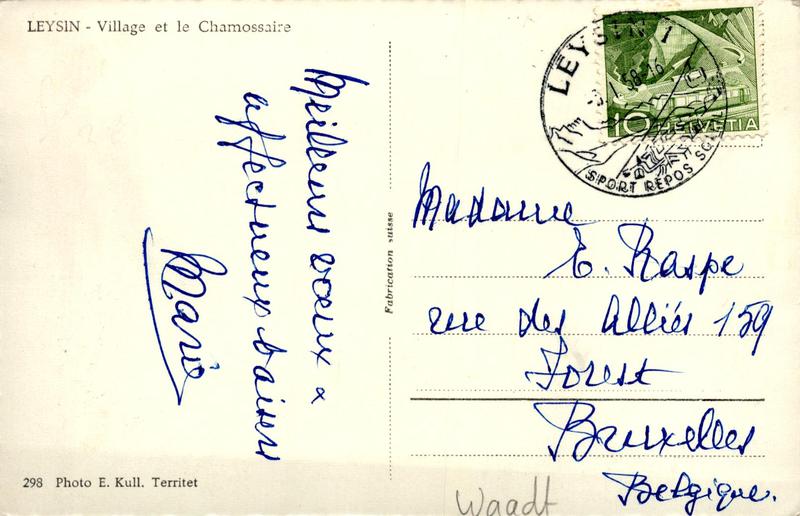 LEYSIN - Village et le Chamossaire
Meilleurs vœux &
affectueux baisers
Marie
298 Photo E. Kull. Territet
Fabrication suisse
LEYSIN 1
58-16
SPORT REPOS
10 HELVETIA
Madame
E. Raspe
rue des Alliés 159
Forest
Bruxelles
Belgique.
Waadt